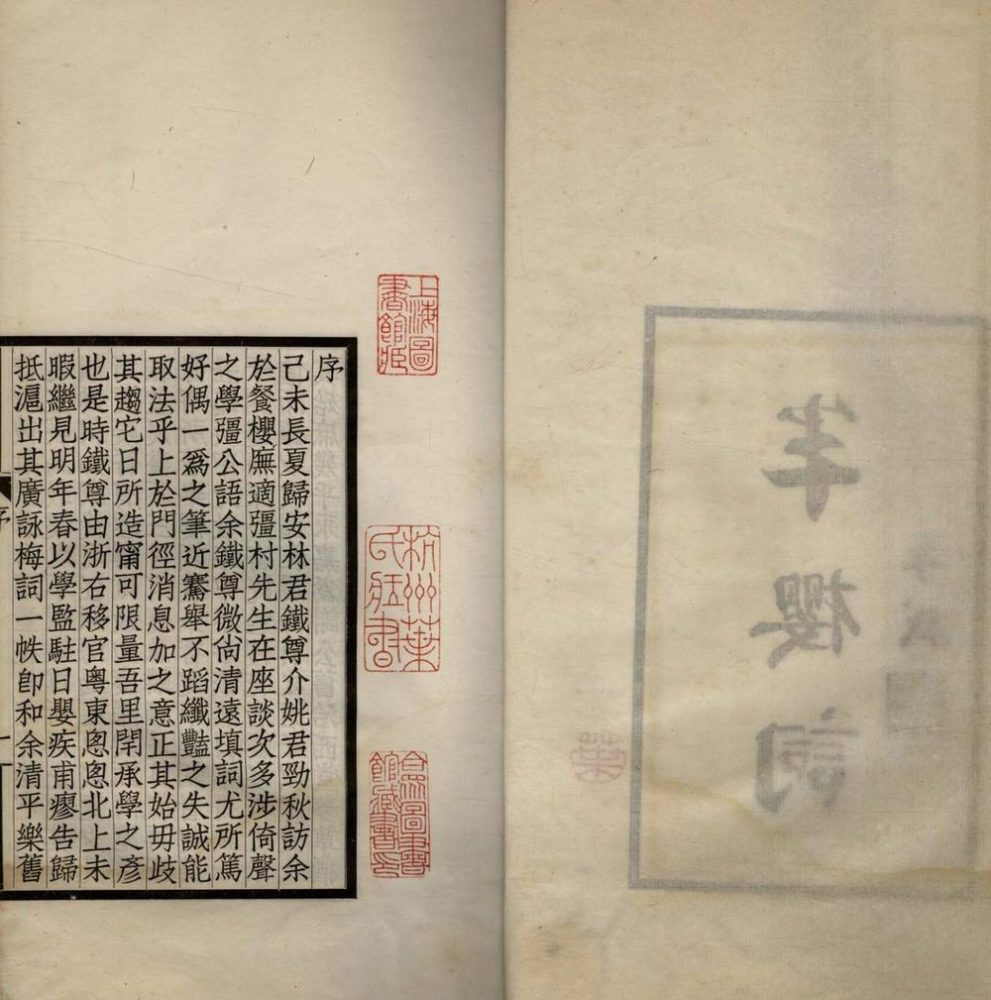 半櫻詞
序
己未長夏歸安林君鐵尊介姚君勁秋訪余
於餐櫻廡適彊村先生在座談次多涉倚聲
之學彊公語余鐵尊微尙清遠填詞尤所篤
好偶一爲之筆近騫舉不蹈纖豔之失誠能
取法乎上於門徑消息加之意正其始毋歧
其趨它日所造甯可限量吾里閈承學之彥
也是時鐵尊由浙右移官粤東悤悤北上未
暇繼見明年春以學監駐日嬰疾甫瘳告歸
抵滬出其廣詠梅詞一帙卽和余清平樂舊
序
上海圖書館藏
杭州葉氏藏書
合眾圖書館藏書印
葉